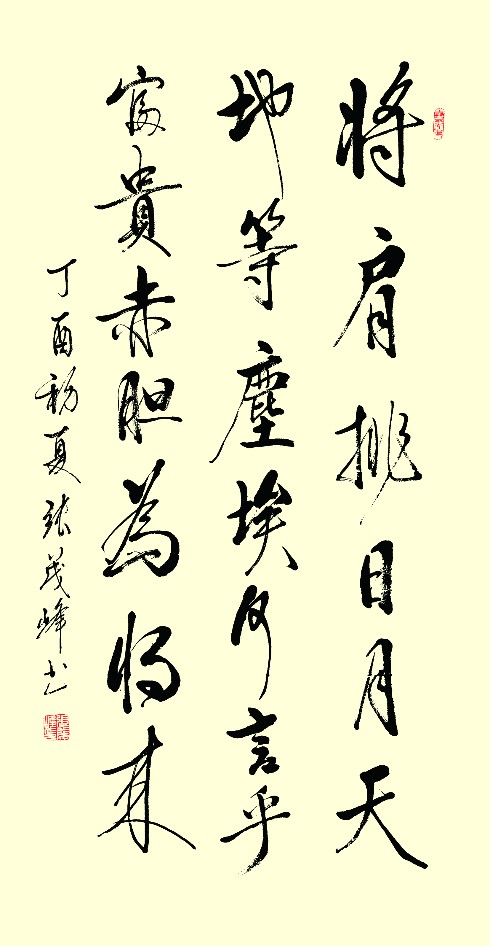 将肩挑日月天
地等塵埃何言乎
富貴赤胆為将来
丁酉初夏張茂峰书